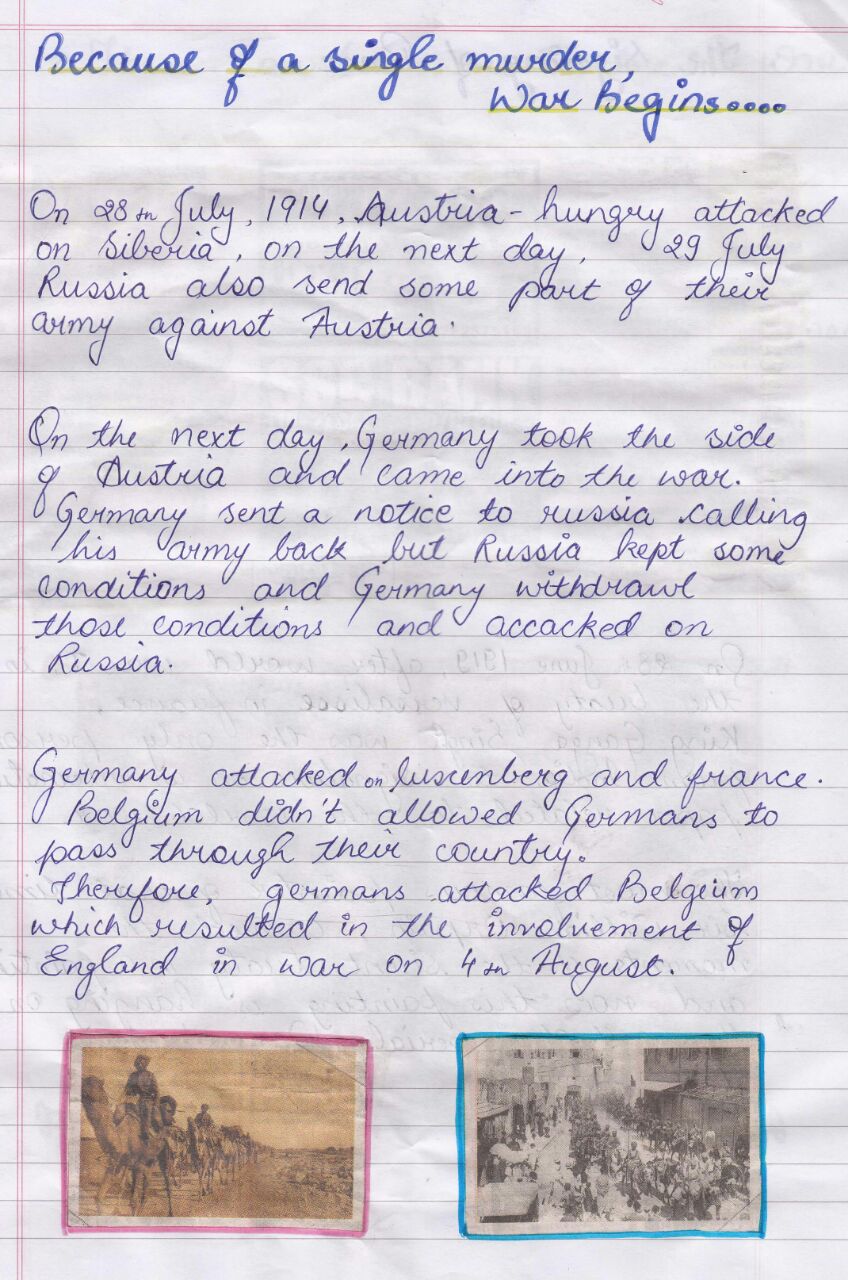 Because of a single murder,
War Begins....
On 28th July, 1914, Austria-hungry attacked
on Siberia, on the next day, 29 July
Russia also send some part of their
army against Austria.
On the next day, Germany took the side
of Austria and came into the war.
Germany sent a notice to russia calling
his army back but Russia kept some
conditions and Germany withdrawl
those conditions and accacked on
Russia.
Germany attacked on luxenberg and france.
Belgium didn't allowed Germans to
pass through their country.
Therefore, germans attacked Belgeium
which resulted in the involvement of
England in war on 4th August.